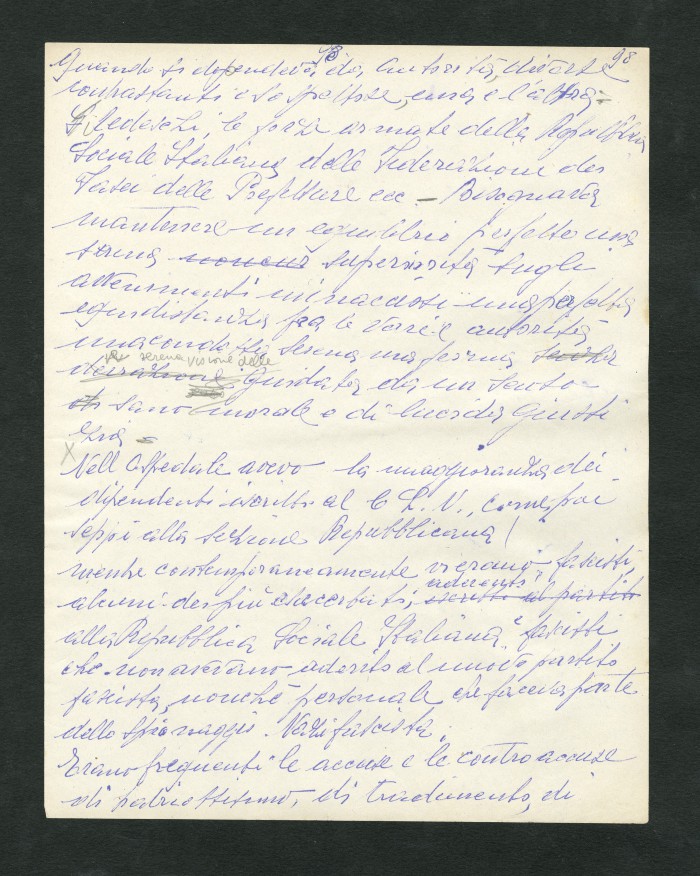 98
Quando si dipendeva da autorità diverse
contrastanti e sospettose, una e l'altra =
I tedeschi, le forze armate della Repubblica
Sociale Italiana delle Federazioni dei
Fasci delle Prefetture ecc - Bisognava
mantenere un equilibrio perfetto una
superiorità sugli
avvenimenti minacciosi una perfetta
equidistanza fra le varie autorità
una condotta serena ma ferma
serena visione delle
guidata da un senso
sano morale e di lucida giusti
zia =
X
Nell'Ospedale avevo la maggioranza dei
dipendenti iscritti al C.L.N., come poi
seppi alla sezione Repubblicana!
mentre contemporaneamente v'erano fascisti,
aderenti
alcuni dei più esacerbati, iscritti al partito
alla Repubblica Sociale Italiana, fascisti
che non avevano aderito al nuovo partito
fascista, nonché personale che faceva parte
dello spionaggio. Nazifascista.
Erano frequenti le accuse e le controaccuse
di patriottismo, di tradimento, di